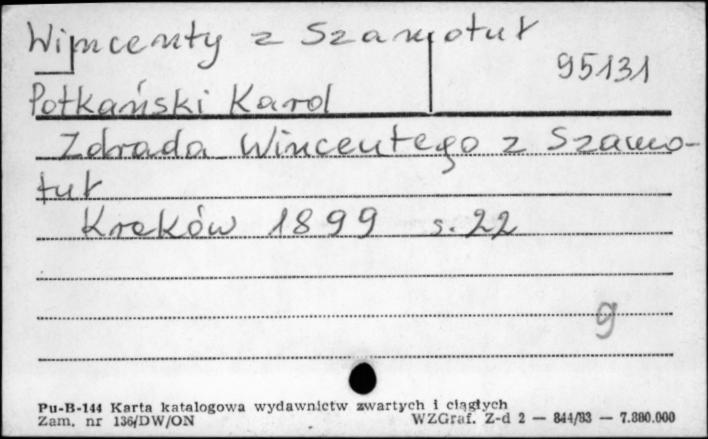 Wincenty z Szamotuł
95131
Potkański Karol
Zdrada Wincentego z Szamo-
tuł
Kraków 1899 s. 22
g
Pu-B-144 Karta katalogowa wydawnictw zwartych i ciągłych
Zam. nr 136/DW/ON WZGraf. Z-d 2 — 844/83 — 7.800.000